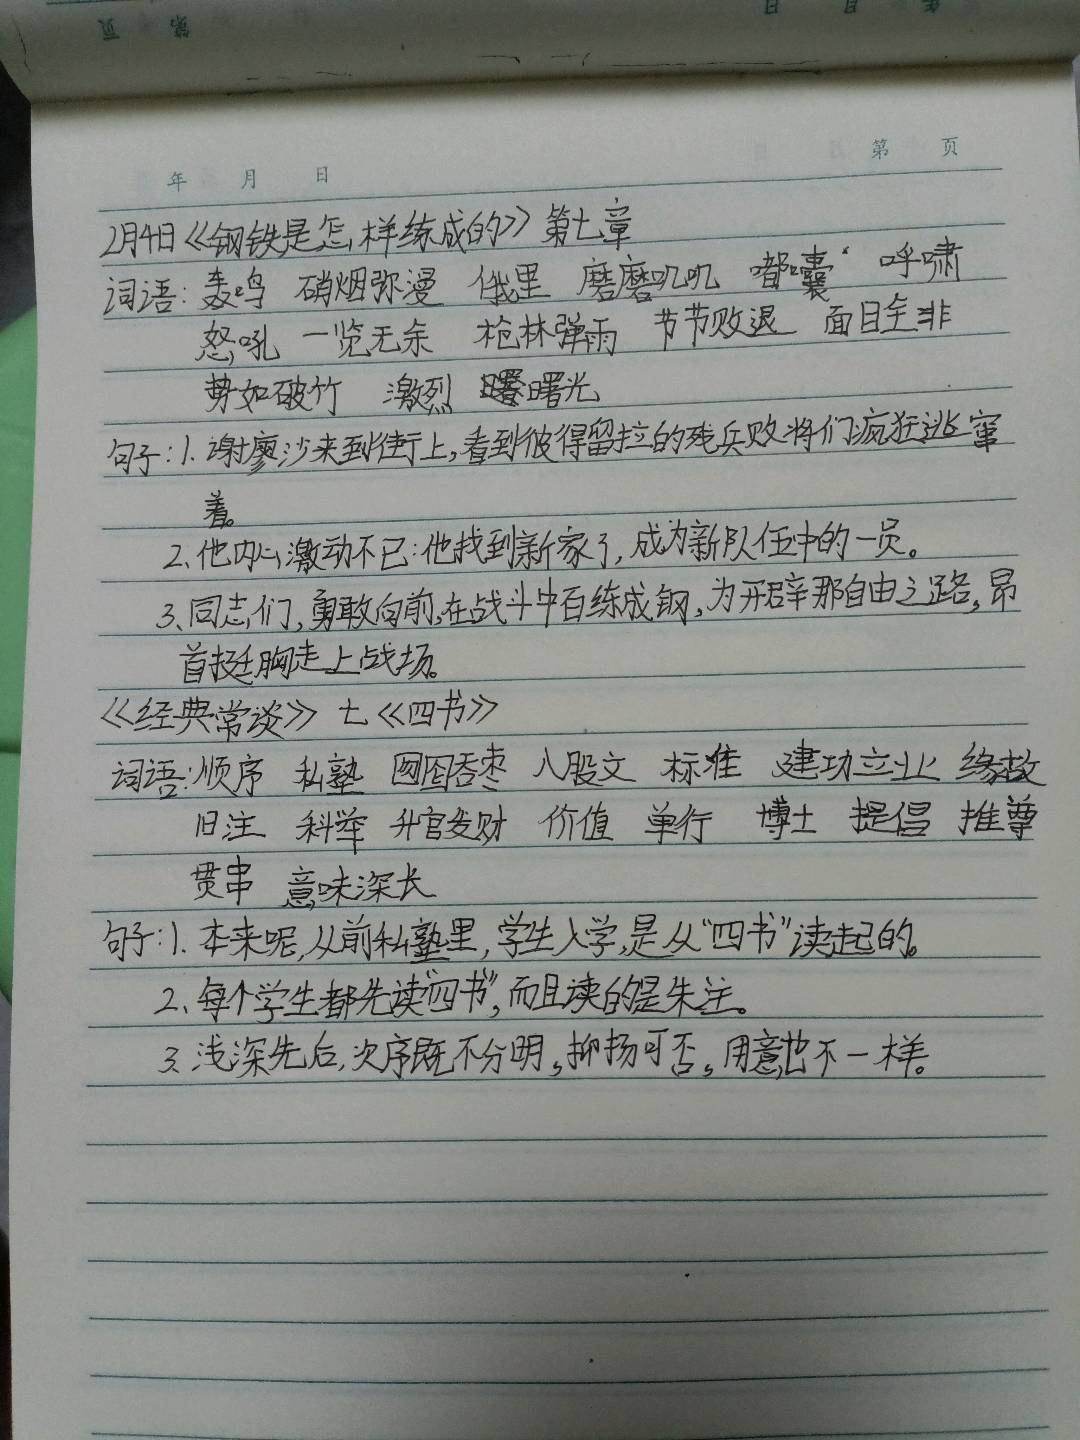 第 页
年 月 日
第 页
年 月 日
2月4日《钢铁是怎样练成的》第七章
词语:轰鸣 硝烟弥漫 俄里 磨磨叽叽 嘟囔 呼啸
怒吼 一览无余 枪林弹雨 节节败退 面目全非
势如破竹 激烈 曙光
句子:1.谢廖沙来到街上,看到彼得留拉的残兵败将们疯狂逃窜
着。
2、他内心激动不已:他找到新家了,成为新队伍中的一员。
3、同志们,勇敢向前,在战斗中百练成钢,为开辟那自由之路,昂
首挺胸走上战场。
《经典常谈》 七《四书》
词语:顺序 私塾 囫囵吞枣 八股文 标准 建功立业 缘故
旧注 科举 升官发财 价值 单行 博士 提倡 推尊
贯串 意味深长
句子:1.本来呢,从前私塾里,学生入学,是从“四书”读起的。
2、每个学生都先读“四书”,而且读的是朱注。
3、浅深先后,次序既不分明,抑扬可否,用意也不一样。